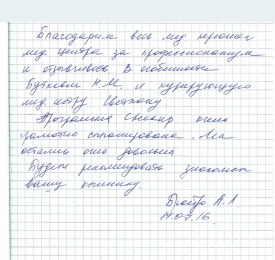 Благодарим весь мед персонал
мед центра за профессионализм
и отзывчивость В особенности
Буткевич Н.М. и курирующую
мед. сестру Светлану
Программа очень
грамотно спланирована. Мы
остались очень довольны
Будем рекомендовать знакомым
вашу клинику.
А.Л.
14.07.16.